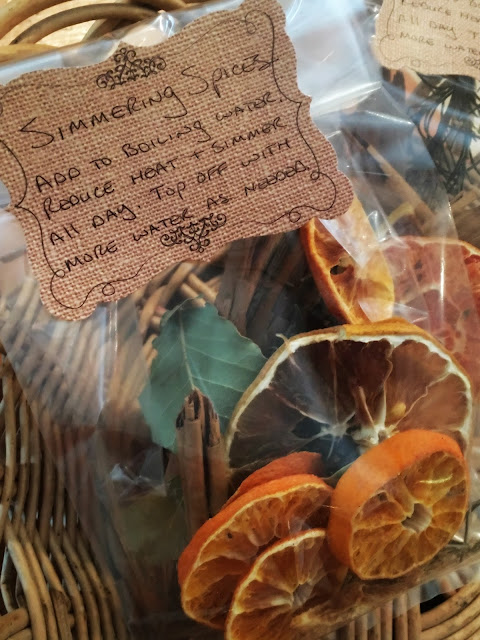 SIMMERING SPICES
ADD TO BOILING WATER.
REDUCE HEAT + SIMMER
ALL DAY. TOP OFF WITH
MORE WATER AS NEEDED.
REDUCE HEA
ALL DAY. TO
MORE WATE